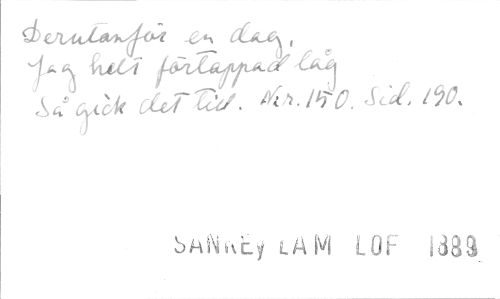 Derutanför en dag,
Jag helt förtappad låg
Så gick det till. Nr. 150. Sid. 190.
SANKEY LAM LOF 1889